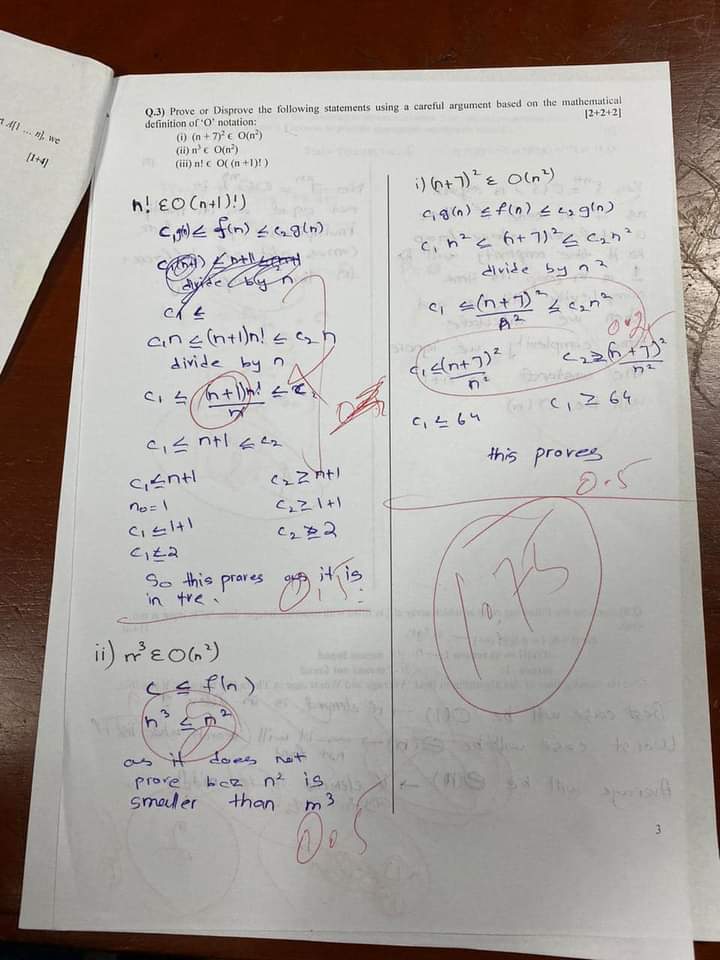 t A[1 ... n], we
[1+4]
Q.3) Prove or Disprove the following statements using a careful argument based on the mathematical
definition of 'O' notation:
[2+2+2]
(i) (n + 7)² € O(n²)
(ii) n³ € O(n²)
(iii) n! € O( (n +1)! )
n! ε O (n+1)!)
c₁g(n) ≤ f(n) ≤ c₂ g(n)
divide by n
c₁ ≤
c₁n ≤ (n+1)n! ≤ c₂ n
divide by n
c₁ ≤ (n+1)n! ≤ c₂
n
c₁ ≤ n+1 ≤ c₂
c₁ ≤ n+1 c₂ ≥ n+1
n₀ = 1 c₂ ≥ 1+1
c₁ ≤ 1+1 c₂ ≥ 2
c₁ ≤ 2
So this proves as it is
in tre.
ii) n³ ε O(n²)
c ≤ f(n)
n³ ≤ n²
as it does not
prove bcz n² is
smaller than m³
0.5
i) (n+7)² ε O(n²)
c₁g(n) ≤ f(n) ≤ c₂ g(n)
c₁ n² ≤ (n+7)² ≤ c₂ n²
divide by n²
c₁ ≤ (n+7)² ≤ c₂n²
n²
c₁ ≤ (n+7)² c₂ ≥ (n+7)²
n² n²
c₁ ≤ 64 c₁ ≥ 64
this proves
0.5
1.75
3